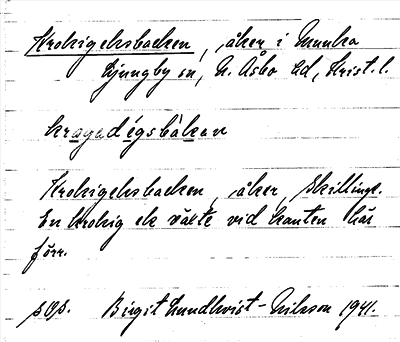 Krokigeksbacken, åker i Munka
Ljungby sn, N. Åsbo hd, Krist. l.
Krokigeksbacken, åker, Skillinge.
En krokig ek växte vid kanten här
förr.
Birgit Lundkvist-Nilsson 1941.